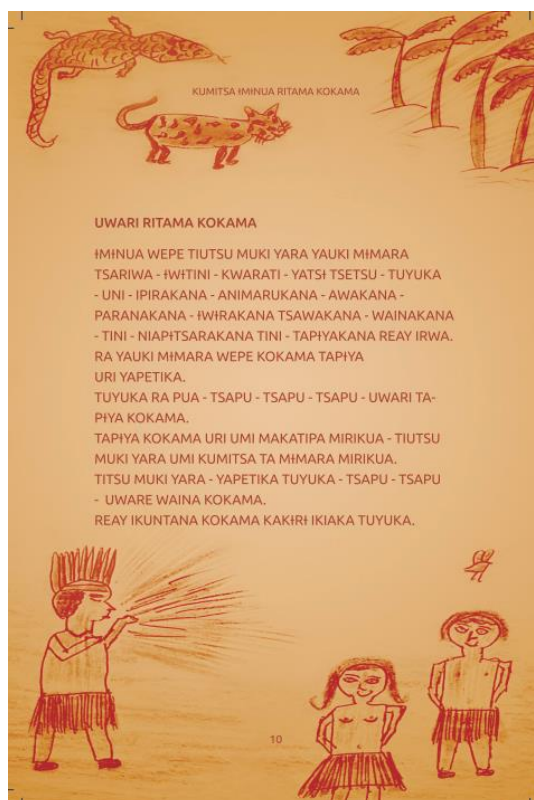 KUMITSA ɨMɨNUA RITAMA KOKAMA
UWARI RITAMA KOKAMA
ɨMɨNUA WEPE TIUTSU MUKI YARA YAUKI MɨMARA
TSARIWA - ɨWɨTINI - KWARATI - YATSɨ TSETSU - TUYUKA
- UNI - IPIRAKANA - ANIMARUKANA - AWAKANA -
PARANAKANA - ɨWɨRAKANA TSAWAKANA - WAINAKANA
- TINI - NIAPɨTSARAKANA TINI - TAPɨYAKANA REAY IRWA.
RA YAUKI MɨMARA WEPE KOKAMA TAPɨYA
URI YAPETIKA.
TUYUKA RA PUA - TSAPU - TSAPU - TSAPU - UWARI TA-
PɨYA KOKAMA.
TAPɨYA KOKAMA URI UMI MAKATIPA MIRIKUA - TIUTSU
MUKI YARA UMI KUMITSA TA MɨMARA MIRIKUA.
TITSU MUKI YARA - YAPETIKA TUYUKA - TSAPU - TSAPU
- UWARE WAINA KOKAMA.
REAY IKUNTANA KOKAMA KAKɨRɨ IKIAKA TUYUKA.
10